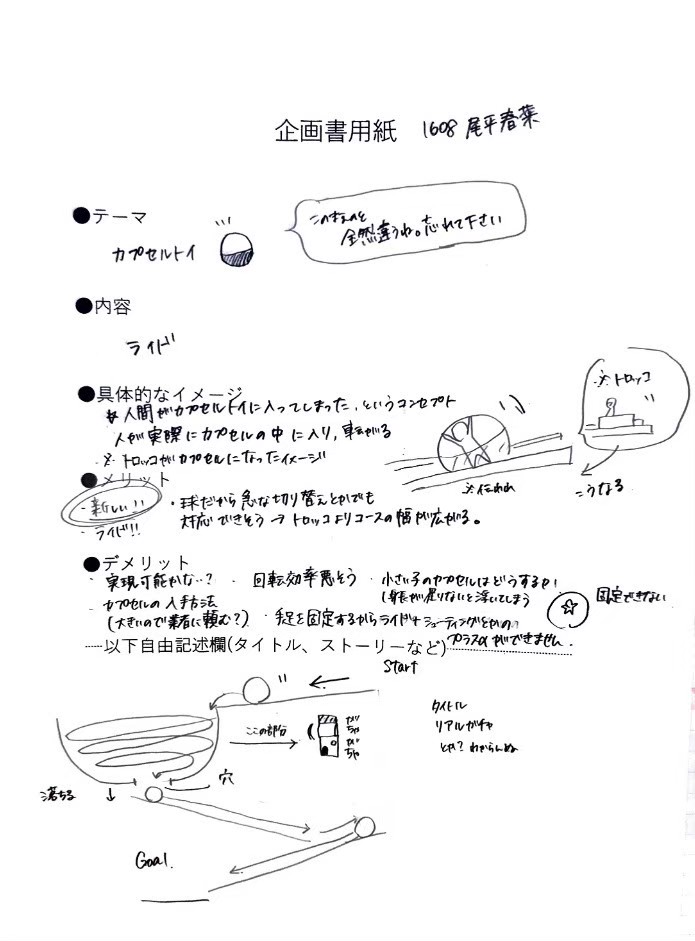 企画書用紙 1608 尾平春葉
●テーマ
カプセルトイ
全然違うね。忘れて下さい
●内容
ライド
●具体的なイメージ
人間がカプセルトイに入ってしまった、というコンセプト
人が実際にカプセルの中に入り、転がる
※ トロッコがカプセルになったイメージ!!
※トロッコ
こうなる
●メリット
・新しい!!
・ライド!!
・球だから急な切り替えとかでも
対応できそう→トロッコよりコースの幅が広がる。
●デメリット
・実現可能かな..?
・回転効率悪そう
・小さい子のカプセルはどうするか!
(身長が足りないと浮いてしまう
固定できない
・カプセルの入手方法
(大きいので業者に頼む?)
・手足を固定するからライド+シューティングとかの
プラスαができません
以下自由記述欄(タイトル、ストーリーなど)
Start
ここの部分
ガチャガチャ
穴
落ちる
Goal.
タイトル
リアルガチャ
とか?わからんぬ